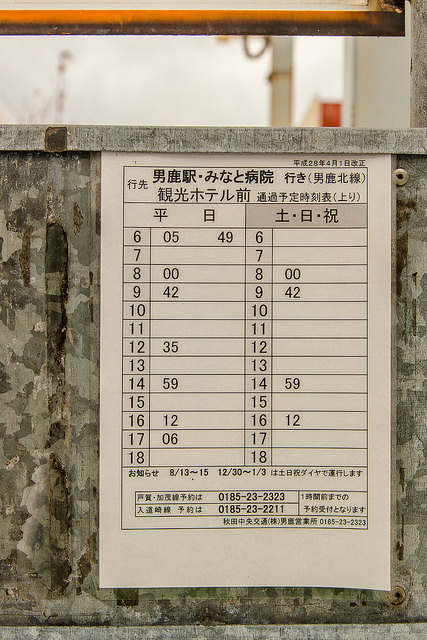 平成28年4月1日改正
行先 男鹿駅・みなと病院 行き(男鹿北線)
観光ホテル前 通過予定時刻表(上り)
平 日 土・日・祝
6 05 49 6
7 7
8 00 8 00
9 42 9 42
10 10
11 11
12 35 12
13 13
14 59 14 59
15 15
16 12 16 12
17 06 17
18 18
お知らせ 8/13～15 12/30～1/3 は土日祝ダイヤで運行します
戸賀・加茂線予約は 0185-23-2323 1時間前までの
入道崎線 予約は 0185-23-2211 予約受付となります
秋田中央交通(株)男鹿営業所 0185-23-2323